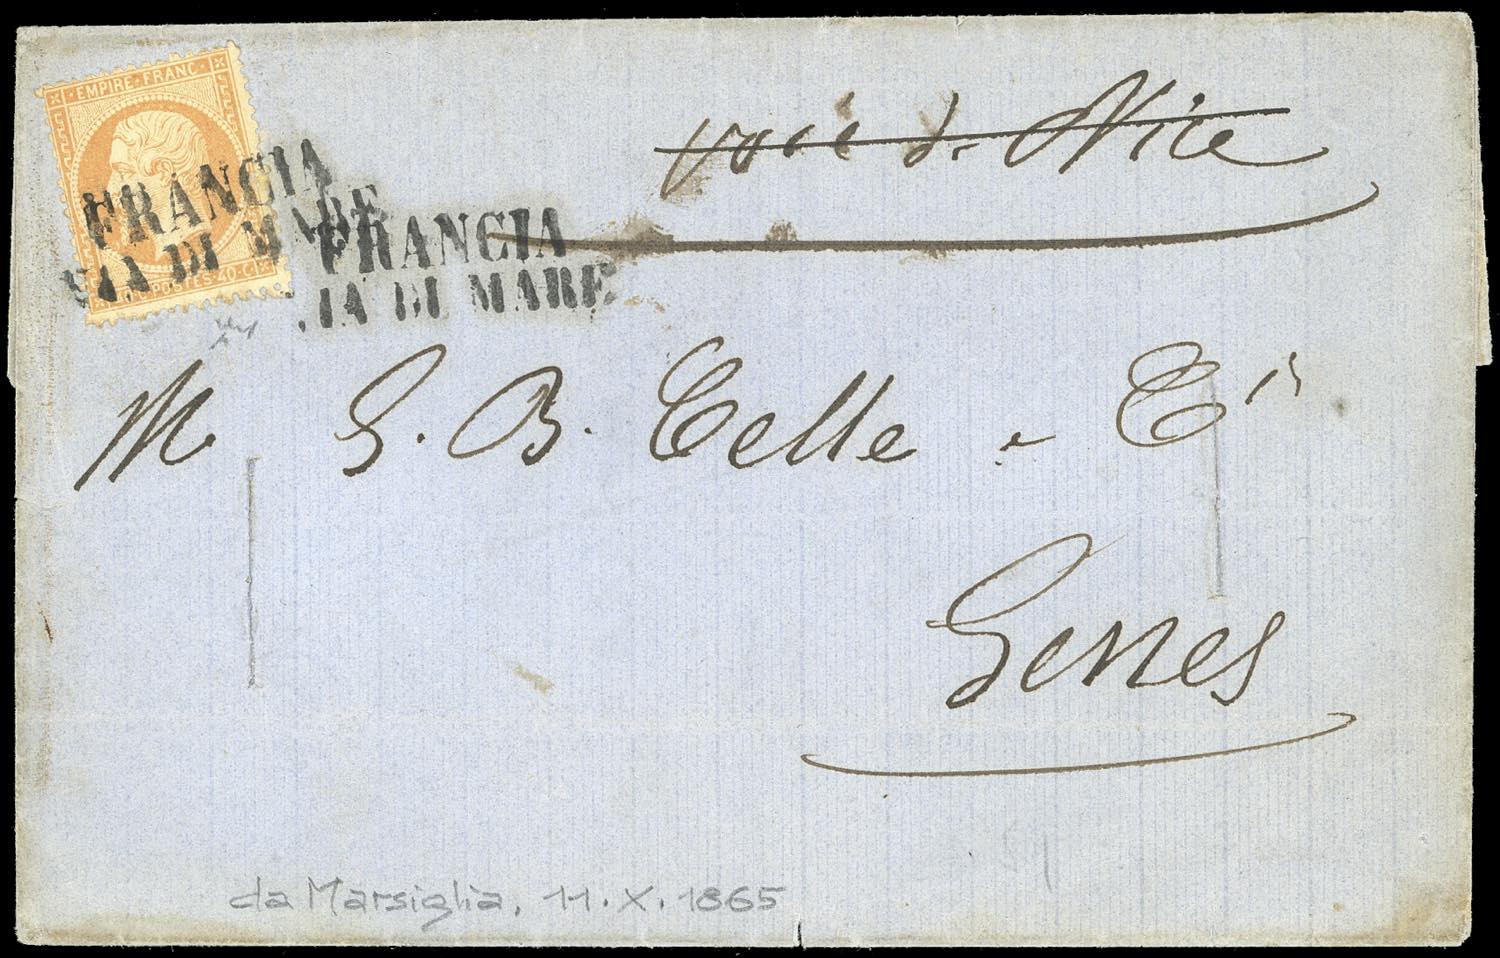 EMPIRE·FRANC·
40·C POSTES·40·C
voie de Nice
FRANCIA
VIA DI MARE
FRANCIA
VIA DI MARE
M. G. B. Celle e Cie
Genes
da Marsiglia, 11.X.1865